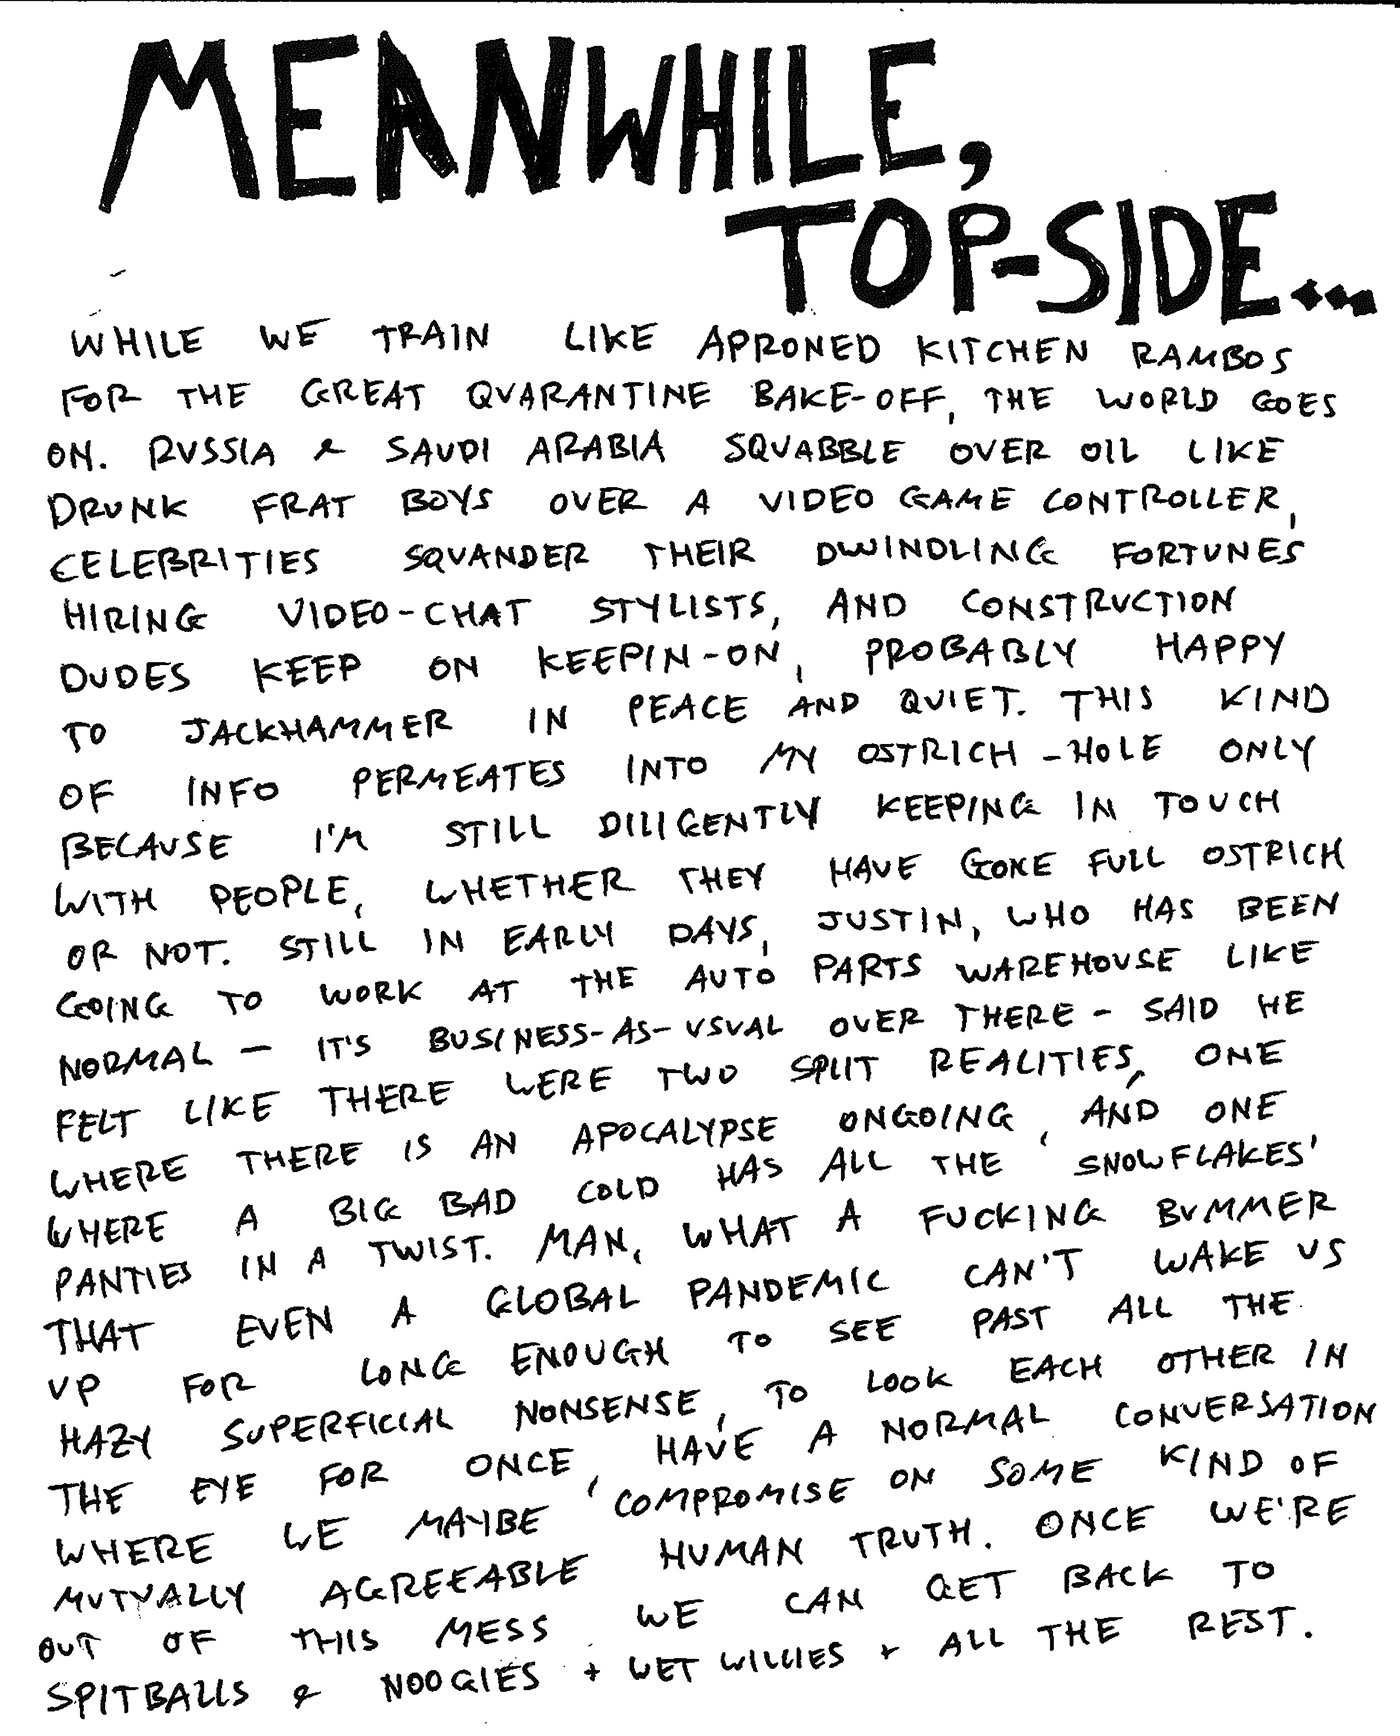 MEANWHILE,
TOP-SIDE...
WHILE WE TRAIN LIKE APRONED KITCHEN RAMBOS
FOR THE GREAT QUARANTINE BAKE-OFF, THE WORLD GOES
ON. RUSSIA & SAUDI ARABIA SQUABBLE OVER OIL LIKE
DRUNK FRAT BOYS OVER A VIDEO GAME CONTROLLER,
CELEBRITIES SQUANDER THEIR DWINDLING FORTUNES
HIRING VIDEO-CHAT STYLISTS, AND CONSTRUCTION
DUDES KEEP ON KEEPIN-ON, PROBABLY HAPPY
TO JACKHAMMER IN PEACE AND QUIET. THIS KIND
OF INFO PERMEATES INTO MY OSTRICH-HOLE ONLY
BECAUSE I'M STILL DILIGENTLY KEEPING IN TOUCH
WITH PEOPLE, WHETHER THEY HAVE GONE FULL OSTRICH
OR NOT. STILL IN EARLY DAYS, JUSTIN, WHO HAS BEEN
GOING TO WORK AT THE AUTO PARTS WAREHOUSE LIKE
NORMAL - IT'S BUSINESS-AS-USUAL OVER THERE - SAID HE
FELT LIKE THERE WERE TWO SPLIT REALITIES, ONE
WHERE THERE IS AN APOCALYPSE ONGOING, AND ONE
WHERE A BIG BAD COLD HAS ALL THE 'SNOWFLAKES'
PANTIES IN A TWIST. MAN, WHAT A FUCKING BUMMER
THAT EVEN A GLOBAL PANDEMIC CAN'T WAKE US
UP FOR LONG ENOUGH TO SEE PAST ALL THE
HAZY SUPERFICIAL NONSENSE, TO LOOK EACH OTHER IN
THE EYE FOR ONCE, HAVE A NORMAL CONVERSATION
WHERE WE MAYBE 'COMPROMISE ON SOME KIND OF
MUTUALLY AGREEABLE HUMAN TRUTH. ONCE WE'RE
OUT OF THIS MESS WE CAN GET BACK TO
SPITBALLS & NOOGIES + WET WILLIES + ALL THE REST.